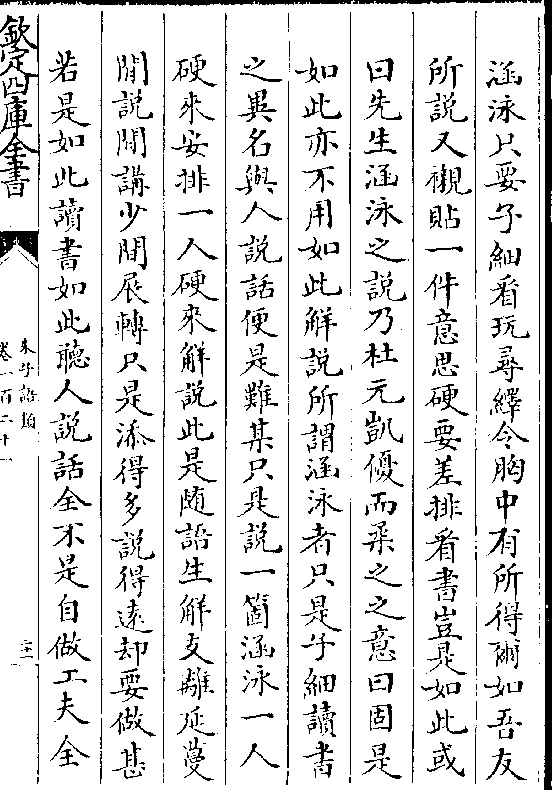 涵泳只要子細看玩尋繹令胸中有所得爾如吾友
所說又襯貼一件意思硬要差排看書豈是如此或
曰先生涵泳之說乃杜元凱優而柔之之意曰固是
如此亦不用如此解說所謂涵泳者只是子細讀書
之異名與人說話便是難某只是說一箇涵泳一人
硬來安排一人硬來解說此是随語生解支離延蔓
閒說閒講少間展轉只是添得多說得逺却要做甚
若是如此讀書如此聽人說話全不是自做工夫全
欽定四庫全書
朱子語類
卷一百二十一